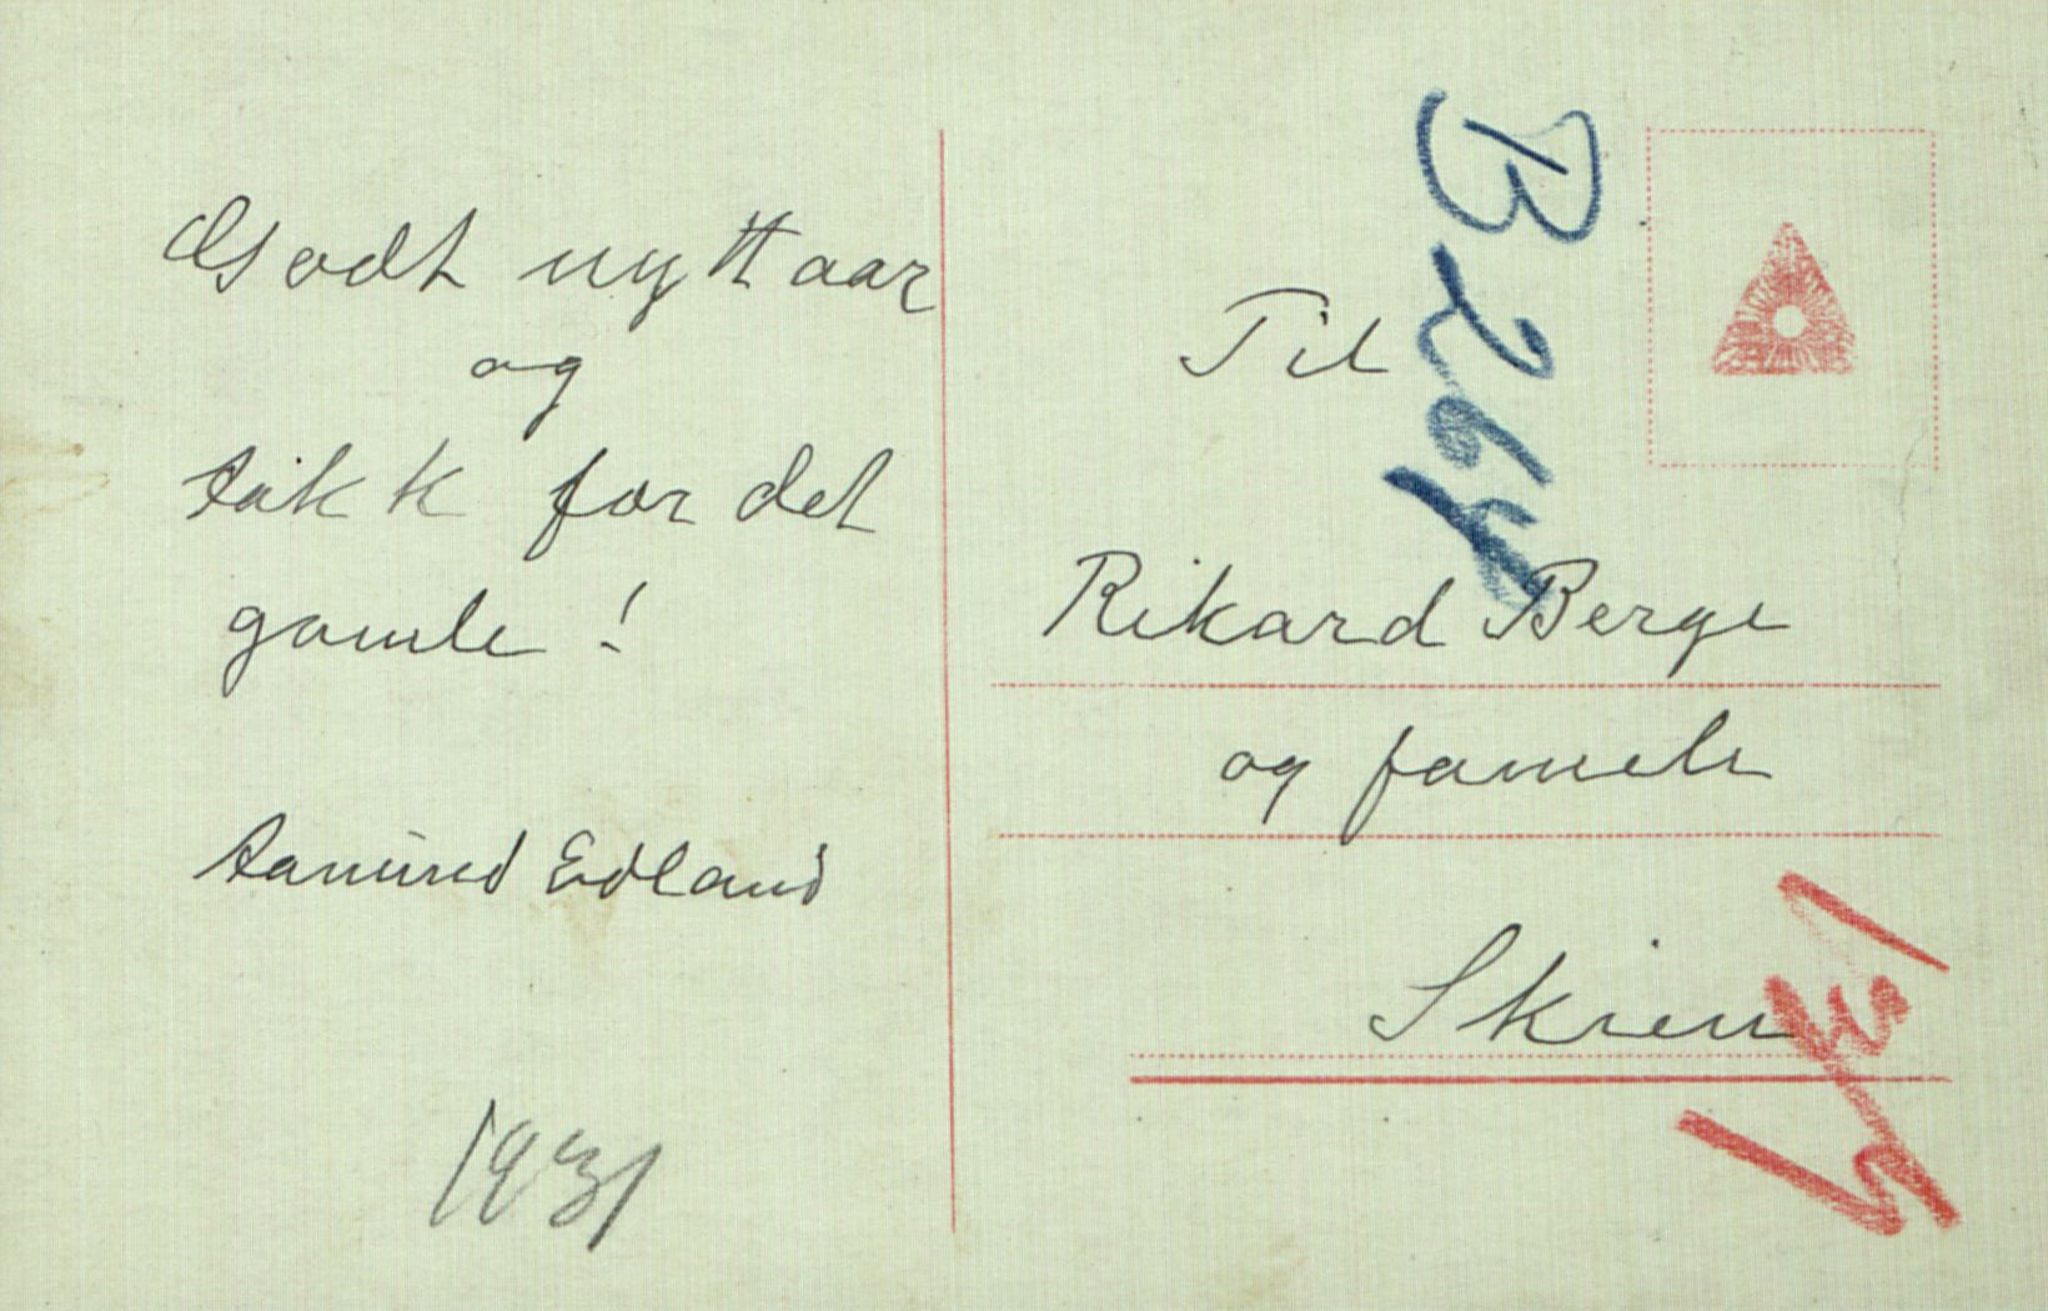 Godt nyttaar
og
takk for det
gamle!
Aamund Edland
1931
Til
Rikard Berge
og famele
Skien
B264